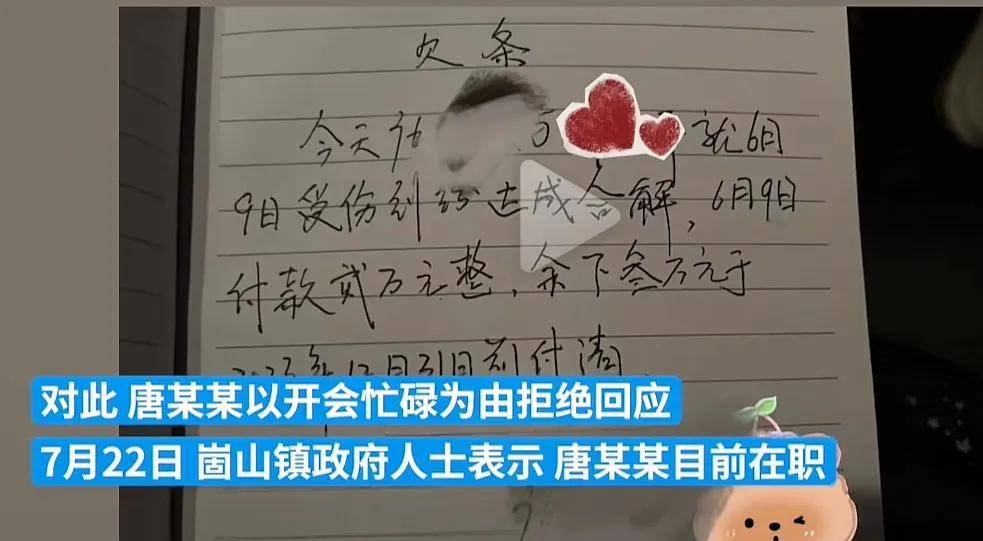 欠条
今天 就6月
9日受伤到 达成合解,6月9日
付款贰万元整,余下叁万元于
年12月31日前付清
对此 唐某某以开会忙碌为由拒绝回应
7月22日 崮山镇政府人士表示 唐某某目前在职